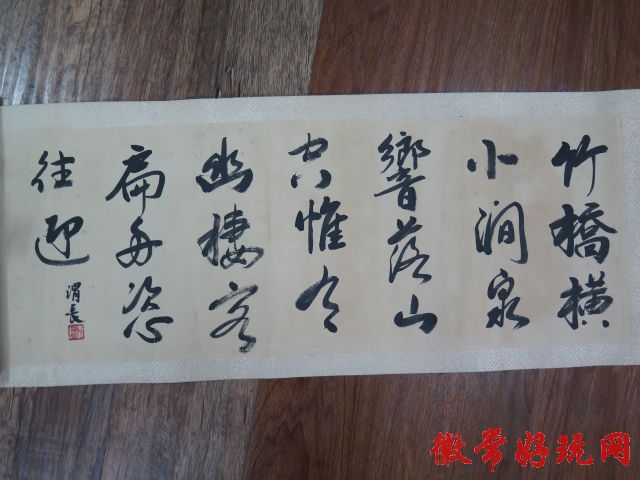 竹橋橫
小澗泉
響落山
空惟有
幽棲客
扁舟恣
往迎
渭長
徽常好玩网